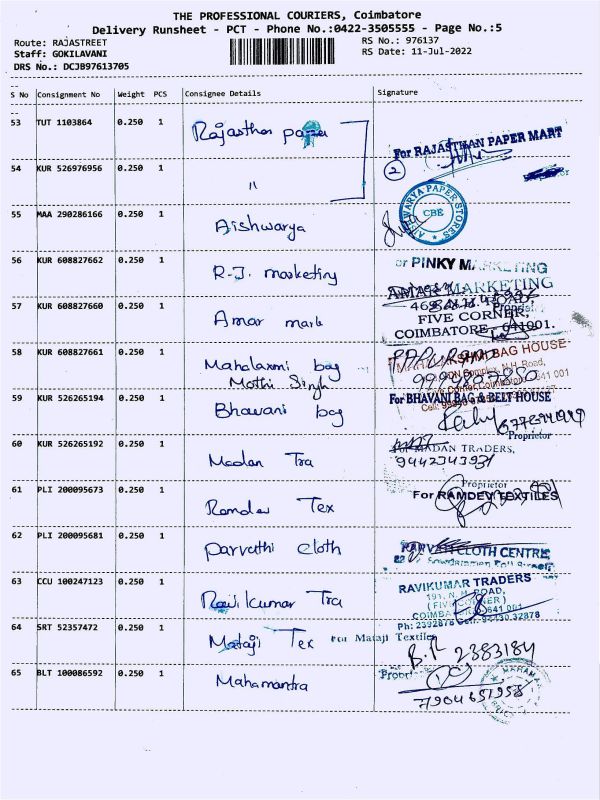 THE PROFESSIONAL COURIERS, Coimbatore
Delivery Runsheet - PCT - Phone No.:0422-3505555 - Page No.:5
Route: RAJASTREET RS No.: 976137
Staff: GOKILAVANI RS Date: 11-Jul-2022
DRS No.: DCJB97613705
S No Consignment No Weight PCS Consignee Details Signature
53 TUT 1103864 0.250 1 Rajasthan paper For RAJASTHAN PAPER MART
54 KUR 526976956 0.250 1 " 2
55 MAA 290286166 0.250 1 Aishwarya AISHWARYA PAPER STORES CBE
56 KUR 608827662 0.250 1 R.J. marketing For PINKY MARKETING
57 KUR 608827660 0.250 1 Amar mark AMAR MARKETING
FIVE CORNER,
COIMBATORE - 641001.
58 KUR 608827661 0.250 1 Mahalaxmi bag MAHALAKSHMI BAG HOUSE
Mothi Singh
59 KUR 526265194 0.250 1 Bhavani bag For BHAVANI BAG & BELT HOUSE
Proprietor
60 KUR 526265192 0.250 1 Madan Tra For MADAN TRADERS,
9442343931
Proprietor
61 PLI 200095673 0.250 1 Ramdev Tex For RAMDEV TEXTILES
62 PLI 200095681 0.250 1 Parvathi cloth PARVATHI CLOTH CENTRE
63 CCU 100247123 0.250 1 Ravikumar Tra RAVIKUMAR TRADERS
191, N. H. ROAD,
(FIVE CORNER)
COIMBATORE 641 001
Ph: 2392878 Cell: 94430 32878
64 SRT 52357472 0.250 1 Mataji Tex For Mataji Textiles
B.R 2383184
65 BLT 100086592 0.250 1 Mahamantra
7904651958